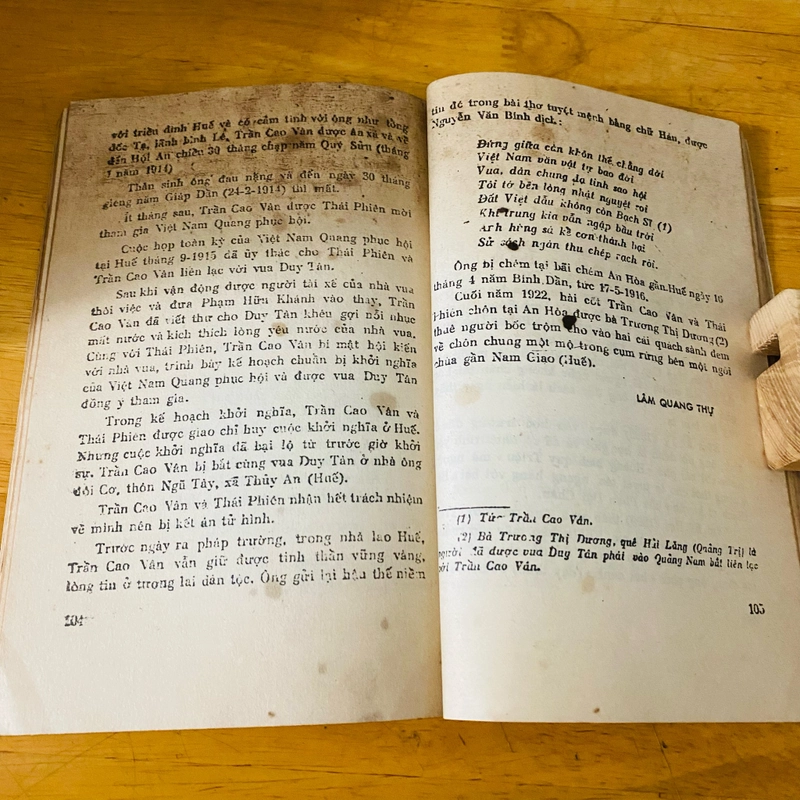 với triều đình Huế và có cảm tình với ông như tổng
đốc Tạ, lãnh binh Lễ, Trần Cao Vân được ân xá và về
đến Hội An chiều 30 tháng chạp năm Quý Sửu (tháng
1 năm 1914)
Thân sinh ông đau nặng và đến ngày 30 tháng
giêng năm Giáp Dần (24-2-1914) thì mất.
Ít tháng sau, Trần Cao Vân được Thái Phiên mời
tham gia Việt Nam Quang phục hội.
Cuộc họp toàn kỳ của Việt Nam Quang phục hội
tại Huế tháng 9-1915 đã ủy thác cho Thái Phiên và
Trần Cao Vân liên lạc với vua Duy Tân.
Sau khi vận động được người tài xế của nhà vua
thôi việc và đưa Phạm Hữu Khánh vào thay, Trần
Cao Vân đã viết thư cho Duy Tân khêu gợi nỗi nhục
mất nước và kích thích lòng yêu nước của nhà vua.
Cùng với Thái Phiên, Trần Cao Vân bí mật hội kiến
với nhà vua, trình bày kế hoạch chuẩn bị khởi nghĩa
của Việt Nam Quang phục hội và được vua Duy Tân
đồng ý tham gia.
Trong kế hoạch khởi nghĩa, Trần Cao Vân và
Thái Phiên được giao chỉ huy cuộc khởi nghĩa ở Huế.
Nhưng cuộc khởi nghĩa đã bại lộ từ trước giờ khởi
sự. Trần Cao Vân bị bắt cùng vua Duy Tân ở nhà ông
đội Cơ, thôn Ngũ Tây, xã Thủy An (Huế).
Trần Cao Vân và Thái Phiên nhận hết trách nhiệm
về mình nên bị kết án tử hình.
Trước ngày ra pháp trường, trong nhà lao Huế,
Trần Cao Vân vẫn giữ được tinh thần vững vàng,
lòng tin ở tương lai dân tộc. Ông gửi lại hậu thế niềm
104
tin đó trong bài thơ tuyệt mệnh bằng chữ Hán, được
Nguyễn Văn Bính dịch:
Đứng giữa càn khôn thề chẳng dời
Việt Nam văn vật tự bao đời
Vua, dân chung dạ tình sao hội
Tôi tớ bền lòng nhật nguyệt rọi
Đất Việt dẫu không còn Bạch Sĩ (1)
Khí trung kia vẫn ngập bầu trời
Anh hùng sá kể cơn thành bại
Sử sách ngàn thu chép rạch rõi.
Ông bị chém tại bãi chém An Hòa gần Huế ngày 16
tháng 4 năm Bính Dần, tức 17-5-1916.
Cuối năm 1922, hài cốt Trần Cao Vân và Thái
Phiên chôn tại An Hòa được bà Trương Thị Dương (2)
thuê người bốc trộm cho vào hai cái quách sành đem
về chôn chung một mộ trong cụm rừng bên một ngôi
chùa gần Nam Giao (Huế).
LÂM QUANG THỰ
(1) Tức Trần Cao Vân.
(2) Bà Trương Thị Dương, quê Hải Lăng (Quảng Trị) là
người đã được vua Duy Tân phái vào Quảng Nam bắt liên lạc
với Trần Cao Vân.
105